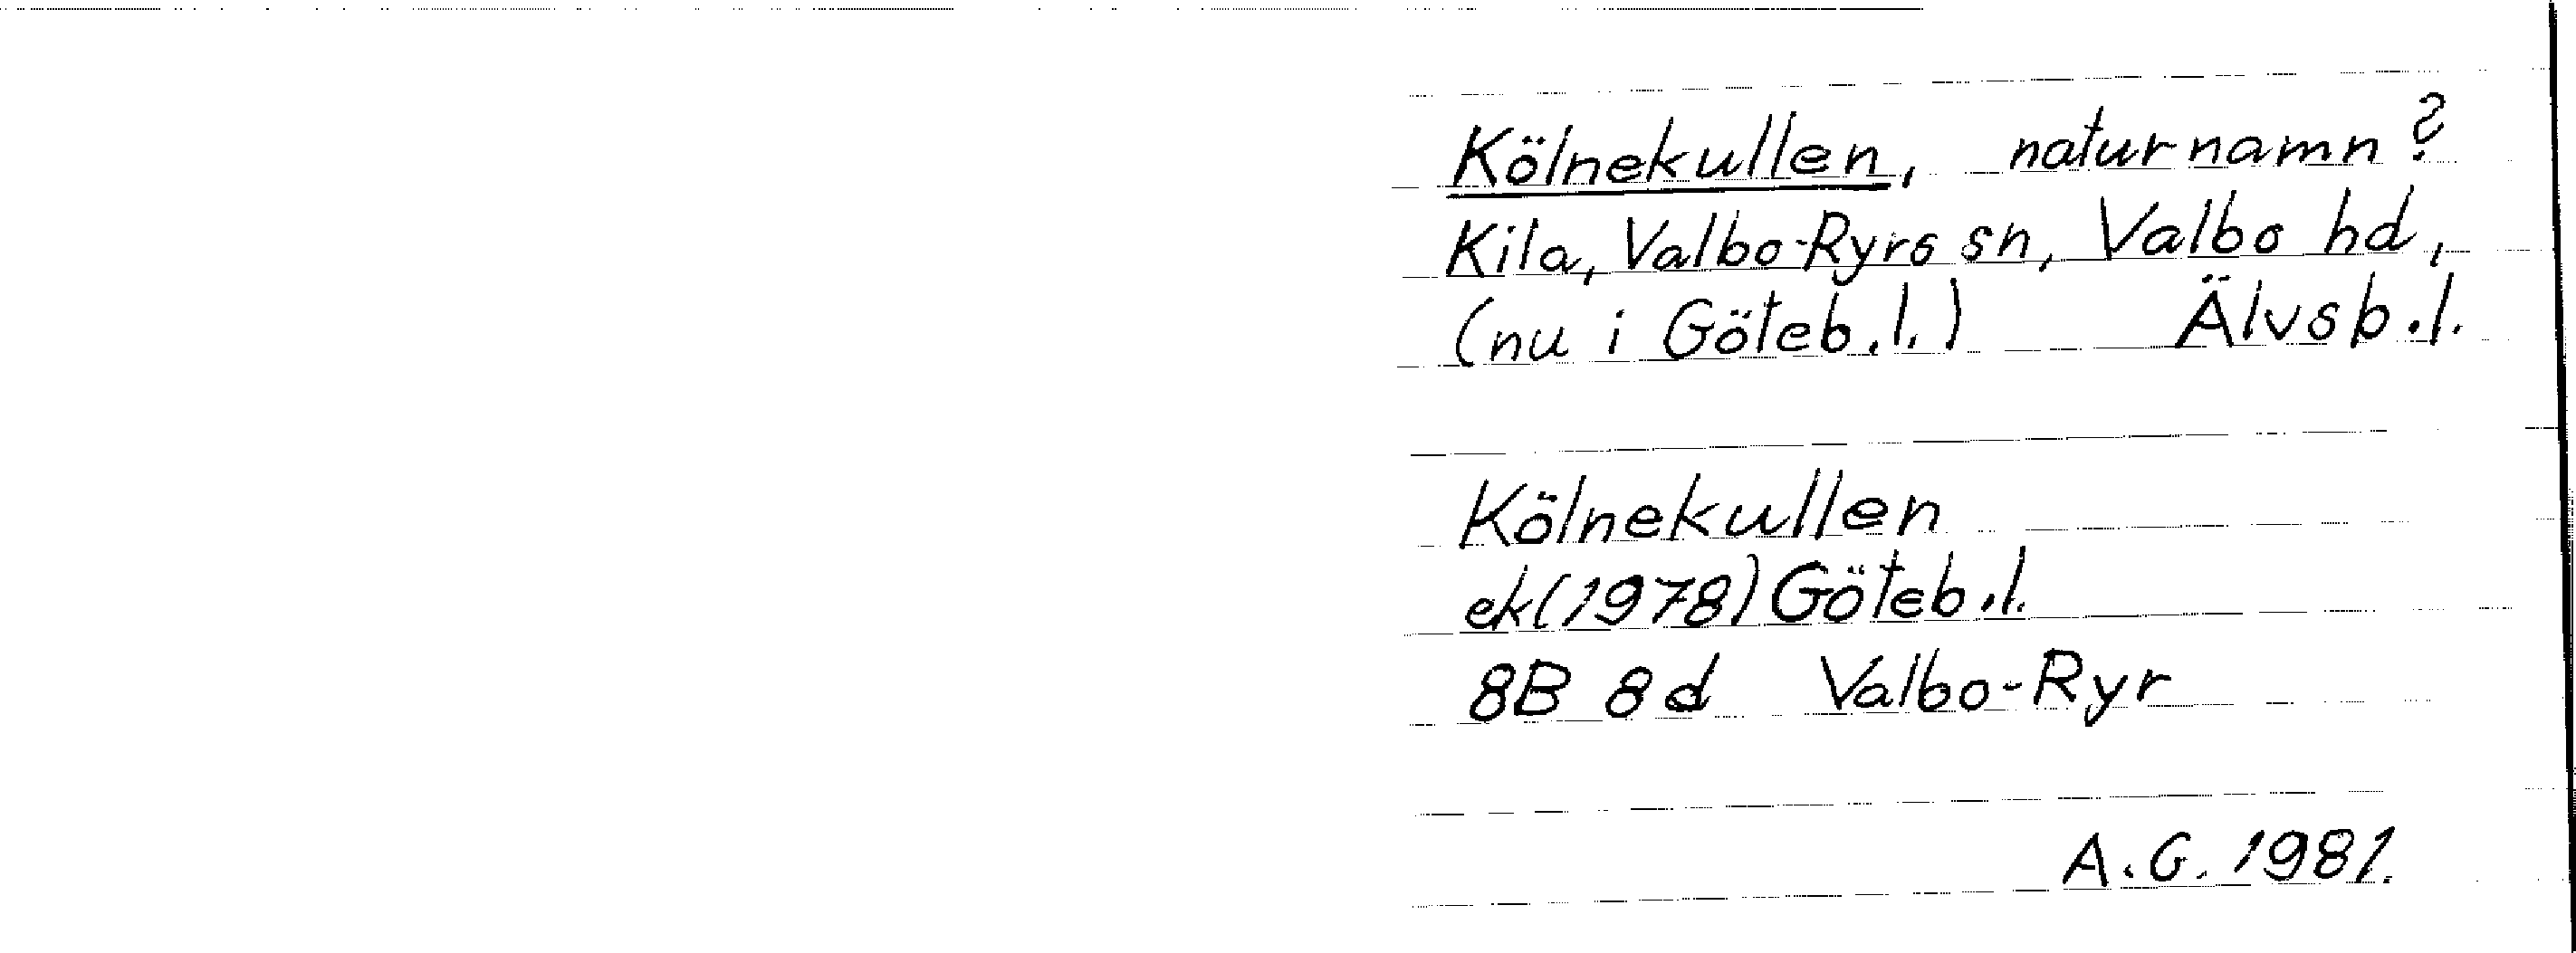 Kölnekullen, naturnamn?
Kila, Valbo-Ryrs sn, Valbo hd,
(nu i Göteb.l.) Älvsb.l.
Kölnekullen
ek(1978) Göteb.l.
8B 8d Valbo-Ryr
A.G. 1981.